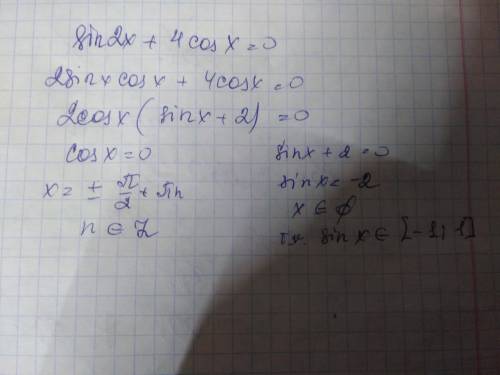 sin2x + 4cosx = 0
2sinxcosx + 4cosx = 0
2cosx ( sinx + 2) = 0
cosx = 0
x = ± π/2 + πn
n ∈ Z
sinx + 2 = 0
sinx = -2
x ∈ ∅
т.к. sinx ∈ [-1; 1]